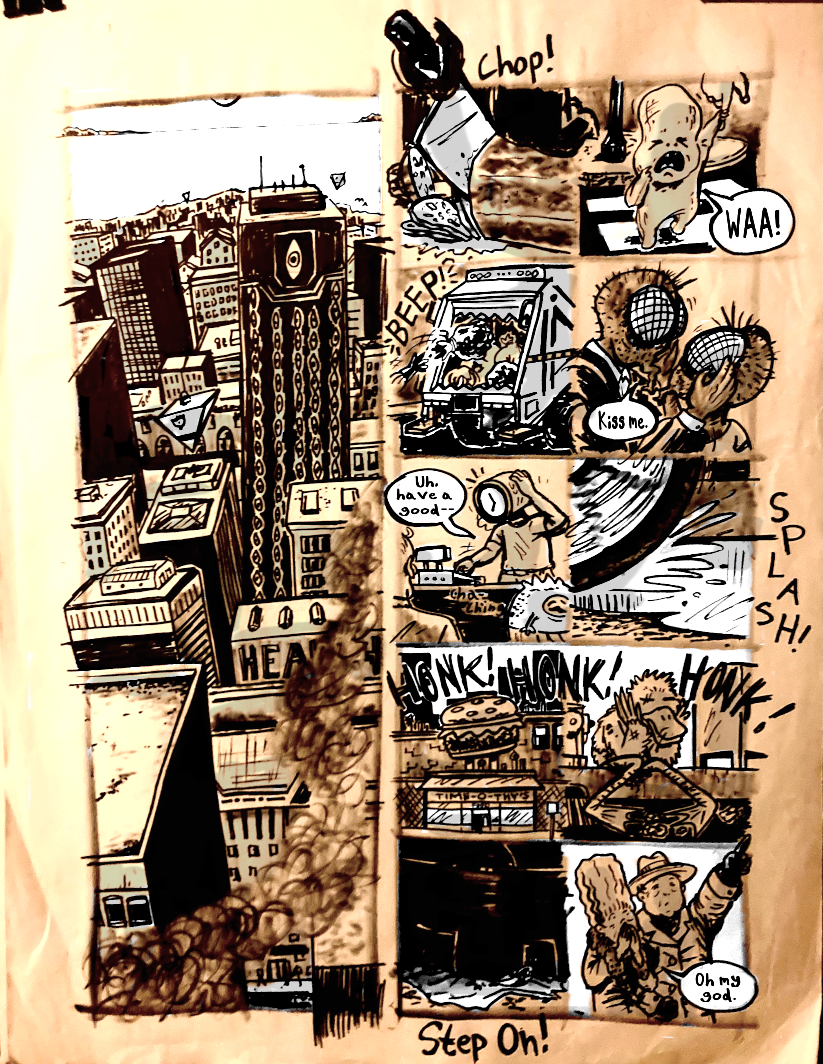 Chop!
WAA!
BEEP!
Kiss me.
Uh,
have a
good--
Cha-
Ching
SPLASH!
HEA
HONK! HONK! HONK!
Oh my
god.
Step On!